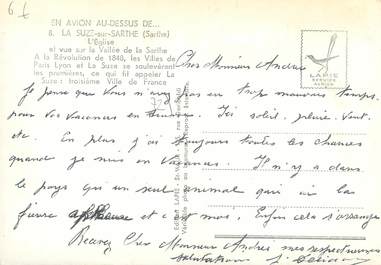 6 f
EN AVION AU-DESSUS DE...
8. LA SUZE-sur-SARTHE (Sarthe)
L'Eglise
et vue sur la Vallée de la Sarthe
A la Révolution de 1848, les Villes de
Paris Lyon et La Suze se soulevèrent
les premières, ce qui fit appeler La
Suze : troisième Ville de France
LAPIE
SERVICE
AERIEN
Cher Monsieur André
Je pense que vous n'avez pas eu trop mauvais temps
pour vos vacances en
Ici soleil, pluie, vent.
etc. En plus, j'ai toujours toutes les chances
quand je suis en vacances. Il n'y a dans
le pays qu'un seul animal qui ai la
fièvre aphteuse et c'est moi. Enfin cela s'arrange
Recevez Cher Monsieur André mes respectueuses
salutations